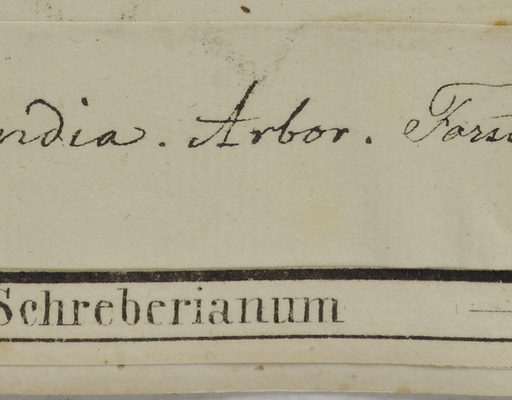 ndia. Arbor. Forst
Schreberianum